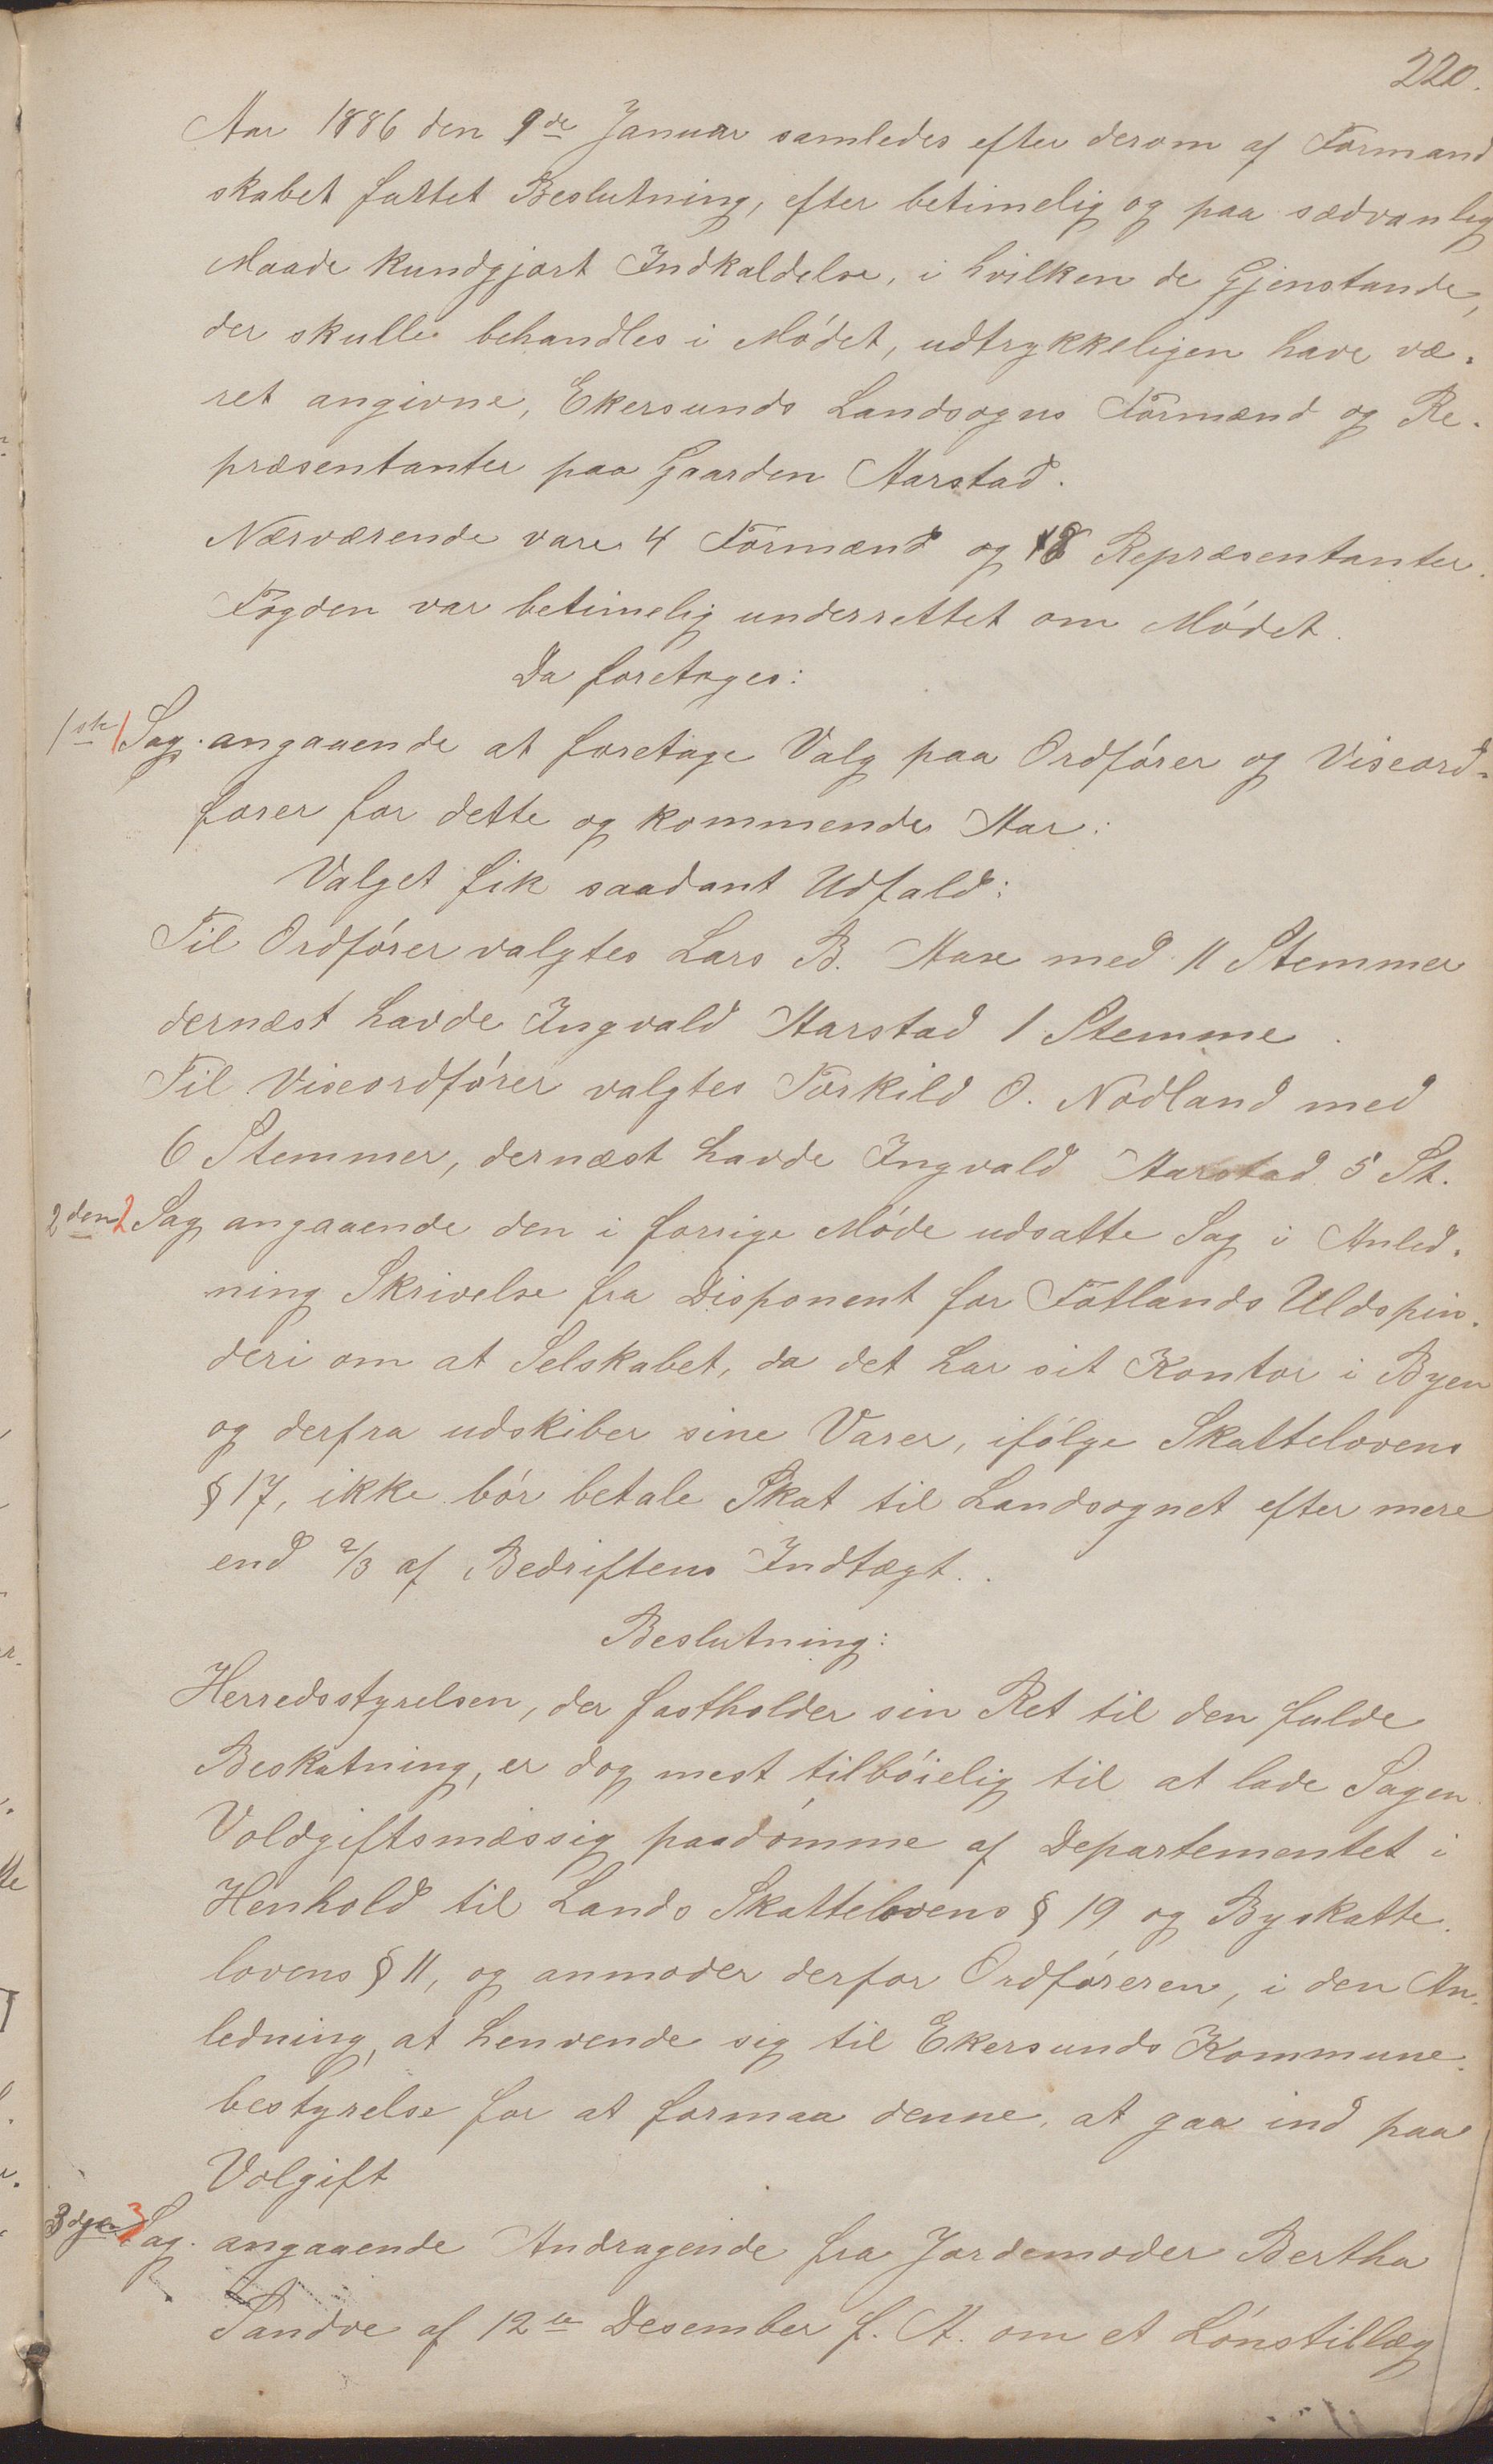 220.
Aar 1886 den 9de Januar samledes efter derom af Formand
skabet fattet Beslutning, efter betimelig og paa sædvanlig
Maade kundgjort Indkaldelse, i hvilken de Gjenstande,
der skulle behandles i Mödet, udtrykkeligen have væ-
ret angivne, Ekersunds Landsogns Formænd og Re-
præsentanter paa Gaarden Aarstad.
Nærværende vare 4 Formænd og 8 Repræsentanter.
Fogden var betimelig underrettet om Mödet.
Da foretoges:
1ste 1 Sag. angaaende at foretage Valg paa Ordförer og Viseord-
förer for dette og kommende Aar:
Valget fik saadant Udfald:
Til Ordförer valgtes Lars B. Aase med 11 Stemmer
dernæst havde Ingvald Aarstad 1 Stemme.
Til Viseordförer valgtes Torkild O. Nodland med
6 Stemmer, dernæst havde Ingvald Aarstad 5 St.
2den 2 Sag angaaende den i forrige Möde udsatte Sag i Anled-
ning Skrivelse fra Disponent for Fotlands Uldspin-
deri om at Selskabet, da det har sit Kontor i Byen
og derfra udskiber sine Varer, ifölge Skattelovens
§ 17, ikke bör betale Skat til Landsognet efter mere
end 2/3 af Bedriftens Indtægt.
Beslutning:
Herredsstyrelsen, der fastholder sin Ret til den fulde
Beskatning, er dog mest tilböielig til at lade Sagen
Voldgiftsmæssig paadömme af Departementet i
Henhold til Lands Skattelovens § 19 og Byskatte-
lovens § 11, og anmoder derfor Ordföreren, i den An-
ledning, at henvende sig til Ekersunds Kommune-
bestyrelse for at formaa denne, at gaa ind paa
Volgift
3dje 3 Sag. angaaende Andragende fra Jordemoder Bertha
Sandve af 12te Desember f. A. om et Lönstillæg